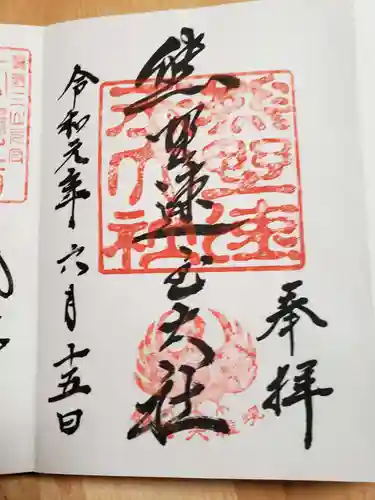 奉拝
熊野速玉大社
令和元年六月十五日
熊野速玉大社